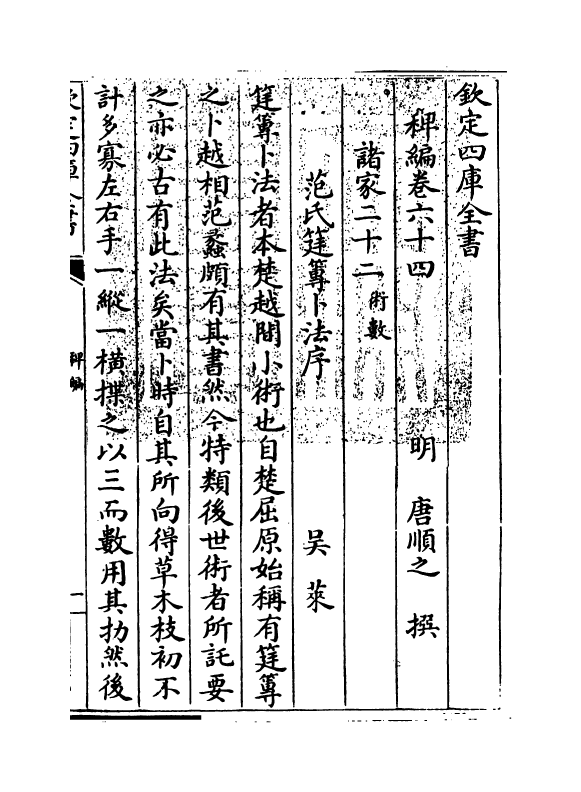 欽定四庫全書
稗編卷六十四　　　　明　唐順之　撰
諸家二十二術數
范氏筳篿卜法序　　　　吴萊
筳篿卜法者本楚越間小術也自楚屈原始稱有筳篿
之卜越相范蠡頗有其書然今特類後世術者所託要
之亦必古有此法矣當卜時自其所向得草木枝初不
計多寡左右手一縱一横揲之以三而數用其扐然後
欽定四庫全書　稗編　一